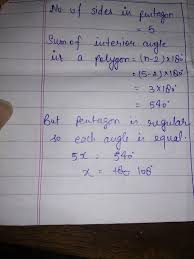 No of sides in pentagon
= 5
Sum of interior angle
is a polygon = (n-2)×180°
= (5-2)×180°
= 3×180°
= 540°
But pentagon is regular
so each angle is equal.
5x = 540°
x = 108°